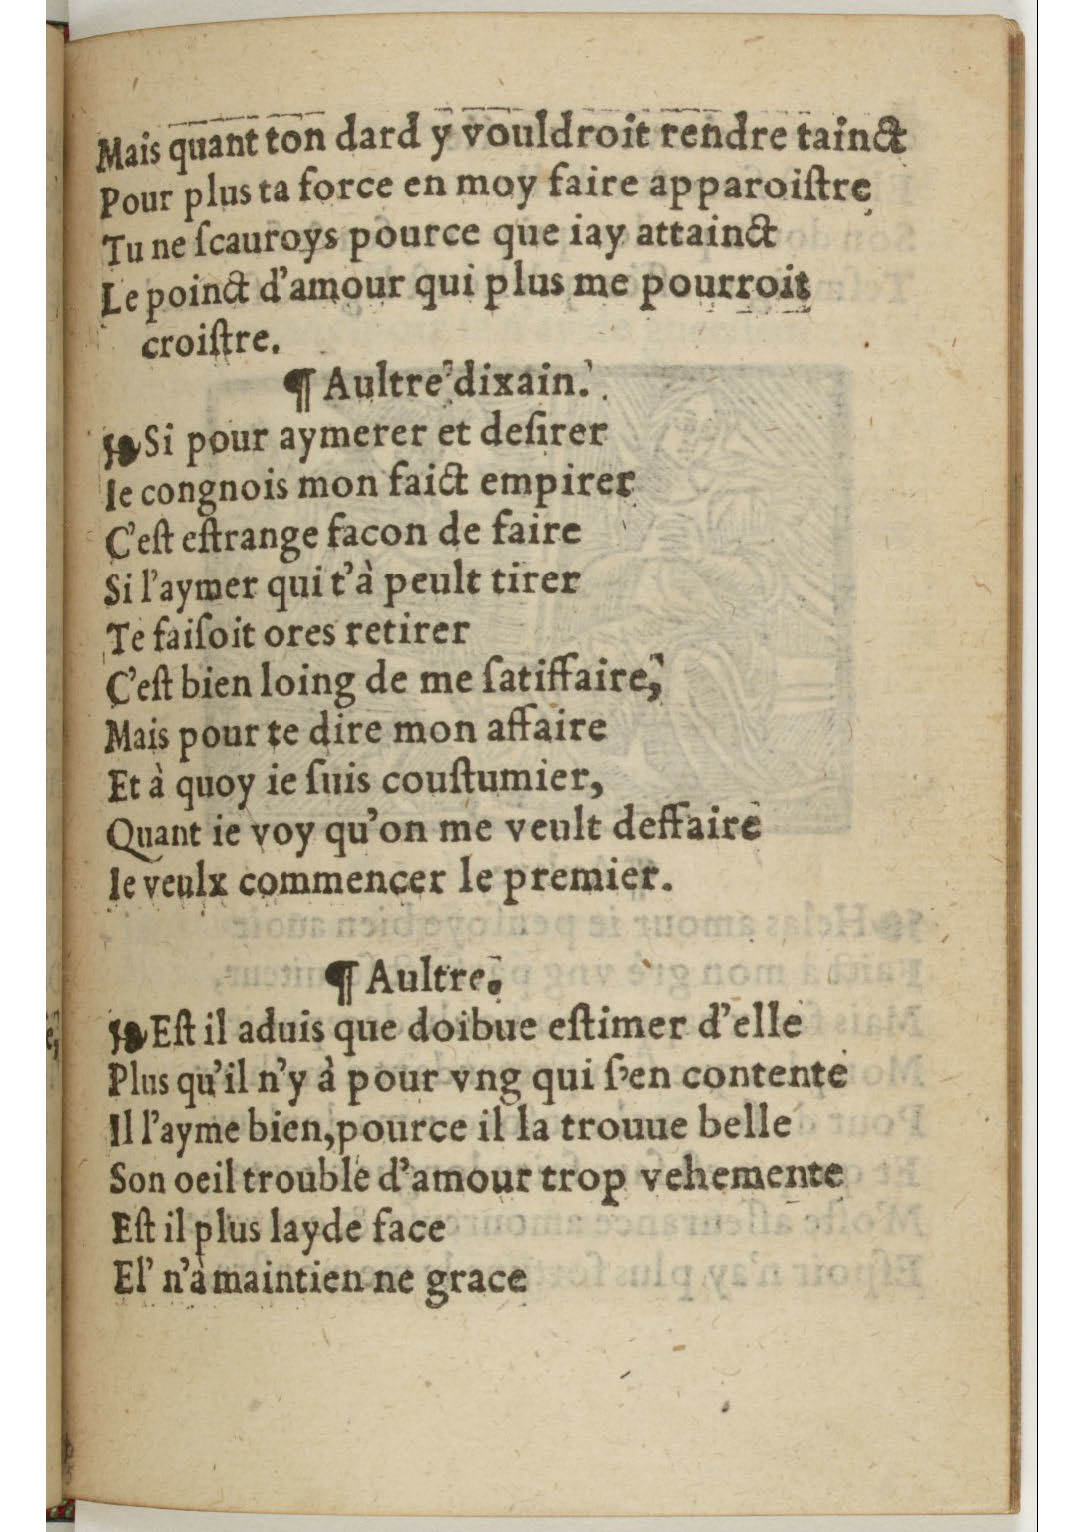 Mais quant ton dard y vouldroit rendre tainct
Pour plus ta force en moy faire apparoiſtre
Tu ne ſcauroys pource que iay attainct
Le poinct d'amour qui plus me pourroit
croiſtre.
¶ Aultre dixain.
Si pour aymerer et deſirer
Ie congnois mon faict empirer
C'eſt eſtrange facon de faire
Si l'aymer qui t'à peult tirer
Te faiſoit ores retirer
C'eſt bien loing de me ſatiffaire,
Mais pour te dire mon affaire
Et à quoy ie ſuis couſtumier,
Quant ie voy qu'on me veult deffaire
Ie veulx commencer le premier.
¶ Aultre.
Eſt il aduis que doibue eſtimer d'elle
Plus qu'il n'y à pour vng qui ſ'en contente
Il l'ayme bien, pource il la trouue belle
Son oeil trouble d'amour trop vehemente
Eſt il plus layde face
El' n'à maintien ne grace